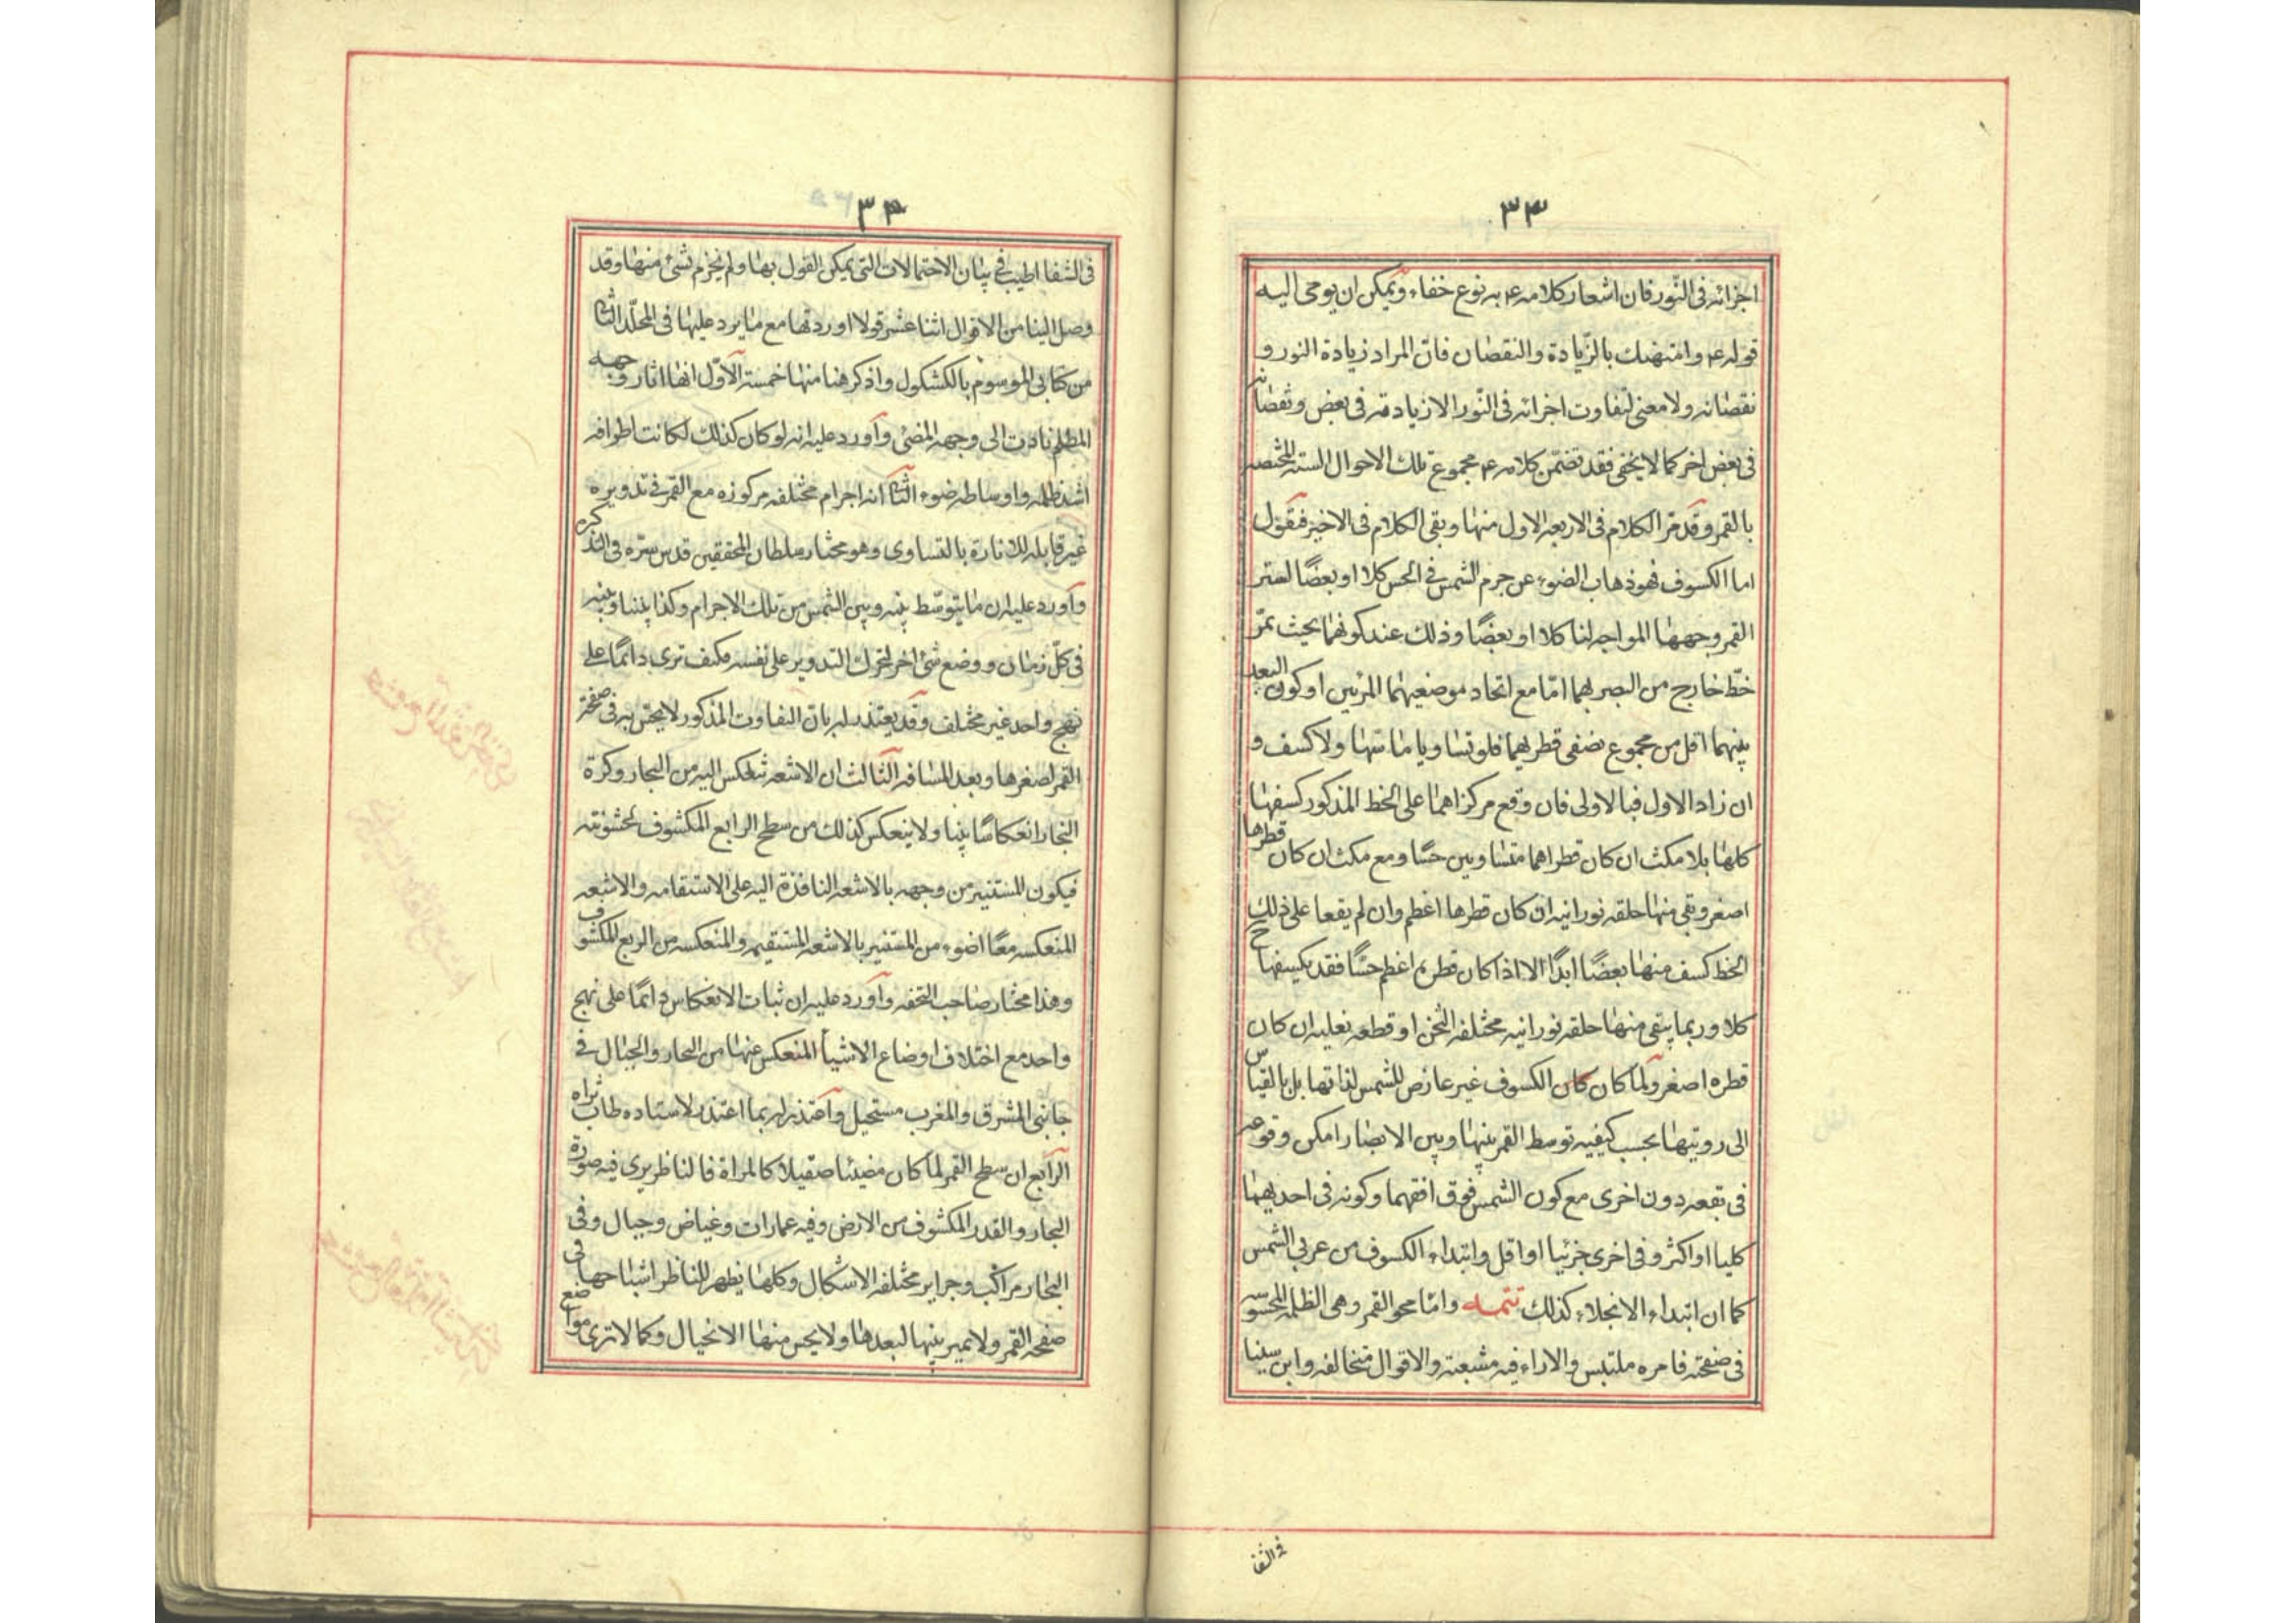 ٣٣
اجزائه فى النّور فان اشعار كلامه ع به نوع خفاء ويمكن ان يومى اليه
قوله ع وامتهنك بالزّيادة والنقصان فانّ المراد زيادة النور و
نقصانه ولا معنى لتفاوت اجزائه فى النّور الا زيادته فى بعض ونقصانه
فى بعض اخر كما لا يخفى فقد تضمّن كلامه ع مجموع تلك الاحوال الستة المختصة
بالقمر وقد مرّ الكلام فى الاربعة الاول منها وبقى الكلام فى الاخيرين فنقول
اما الكسوف فهو ذهاب الضوء عن جرم الشمس فى الحس كلا او بعضًا لستر
القمر وجهها المواجه لنا كلا او بعضًا وذلك عند كونهما بحيث تمّر
خطّ خارج من البصر بهما امّا مع اتحاد موضعيهما المرئيين او كون البعد
بينهما اقل من مجموع نصفى قطريهما فلو تساويا ماسّها ولا كسف و
ان زاد الاول فبالاولى فان وقع مركزاهما على الخط المذكور كسفها
كلها بلا مكث ان كان قطراهما متساويين حسًا ومع مكث ان كان قطرها
اصغر وبقى منها حلقه نورانيه ان كان قطرها اعظم وان لم يقعا على ذلك
الخط كسف منها بعضًا ابدًا الا اذا كان قطره اعظم حسًّا فقد يكسفها ح
كلا وربما يبقى منها حلقه نورانيه مختلفه الثخن او قطعه نعليه ان كان
قطره اصغر ولمّا كان الكسوف غير عارض للشمس لذاتها بل بالقياس
الى رويتها بحسب كيفيه توسط القمر بينها وبين الابصار امكن وقوعه
فى بقعه دون اخرى مع كون الشمس فوق افقهما وكونه فى احديهما
كليا او اكثر وفى اخرى جزئيا او اقل وابتداء الكسوف من غربى الشمس
كما ان ابتداء الانجلاء كذلك تتمه وامّا محو القمر وهى الظلمه المحسوسه
فى صفحته فامره ملتبس والاراء فيه متشعبة والاقوال متخالفه وابن سينا
فى الشفا
٣٤
فى الشفا اطيب فى بيان الاحتمالات التى يمكن القول بها ولم يجزم بشئ منها وقد
وصل الينا من الاقوال اثنا عشر قولا اوردتها مع ما يرد عليها فى المجلّد الثالث
من كتابى الموسوم بالكشكول واذكر هنا منها خمسة الاوّل انها اثار وجهه
المظلم تادت الى وجهه المضئ واورد عليه انه لو كان كذلك لكانت اطرافه
اشد ظلمه واوساطه ضوء الثانى انه اجرام مختلفه مركوزه مع القمر فى تدويره
غير قابله للانارة بالتساوى وهو مختار سلطان المحققين قدس سرّه فى التذكره
واورد عليه ان ما يتوسّط بينه وبين الشمس من تلك الاجرام وكذا بيننا وبينه
فى كلّ زمان ووضع شئ اخر لتحرك التدوير على نفسه فكيف ترى دائمًا على
نهج واحد غير مختلف وقد يعتذر له بان التفاوت المذكور لا يحسّ به فى صفحة
القمر لصغرها وبعد المسافه الثالث ان الاشعه تنعكس اليه من البحار وكرة
البخار انعكاسًا بيّنا ولا ينعكس كذلك من سطح الرابع المكشوف لخشونته
فيكون المستنير من وجهه بالاشعه النافذة اليه على الاستقامه والاشعه
المنعكسه معًا اضوء من المستنير بالاشعه المستقيمه والمنعكسه من الربع المكشوف
وهذا مختار صاحب التحفه واورد عليه ان ثبات الانعكاس دائمًا على نهج
واحد مع اختلاف اوضاع الاشيأ المنعكس عنها من البحار والجبال فى
جانبى المشرق والمغرب مستحيل واعتذر له بما اعتذر لاستاده طاب ثراه
الرابع ان سطح القمر لما كان مضيئا صقيلا كالمراة فالناظر يرى فيه صورة
البحار والقدر المكشوف من الارض وفيه عمارات وغياض وجبال وفى
البحار مراكب وجزاير مختلفه الاشكال وكلها يظهر للناظر اشباحها فى
صفحه القمر ولا يميز بينها لبعدها ولا يحس منها الا بخيال وكما لا ترى مواضع